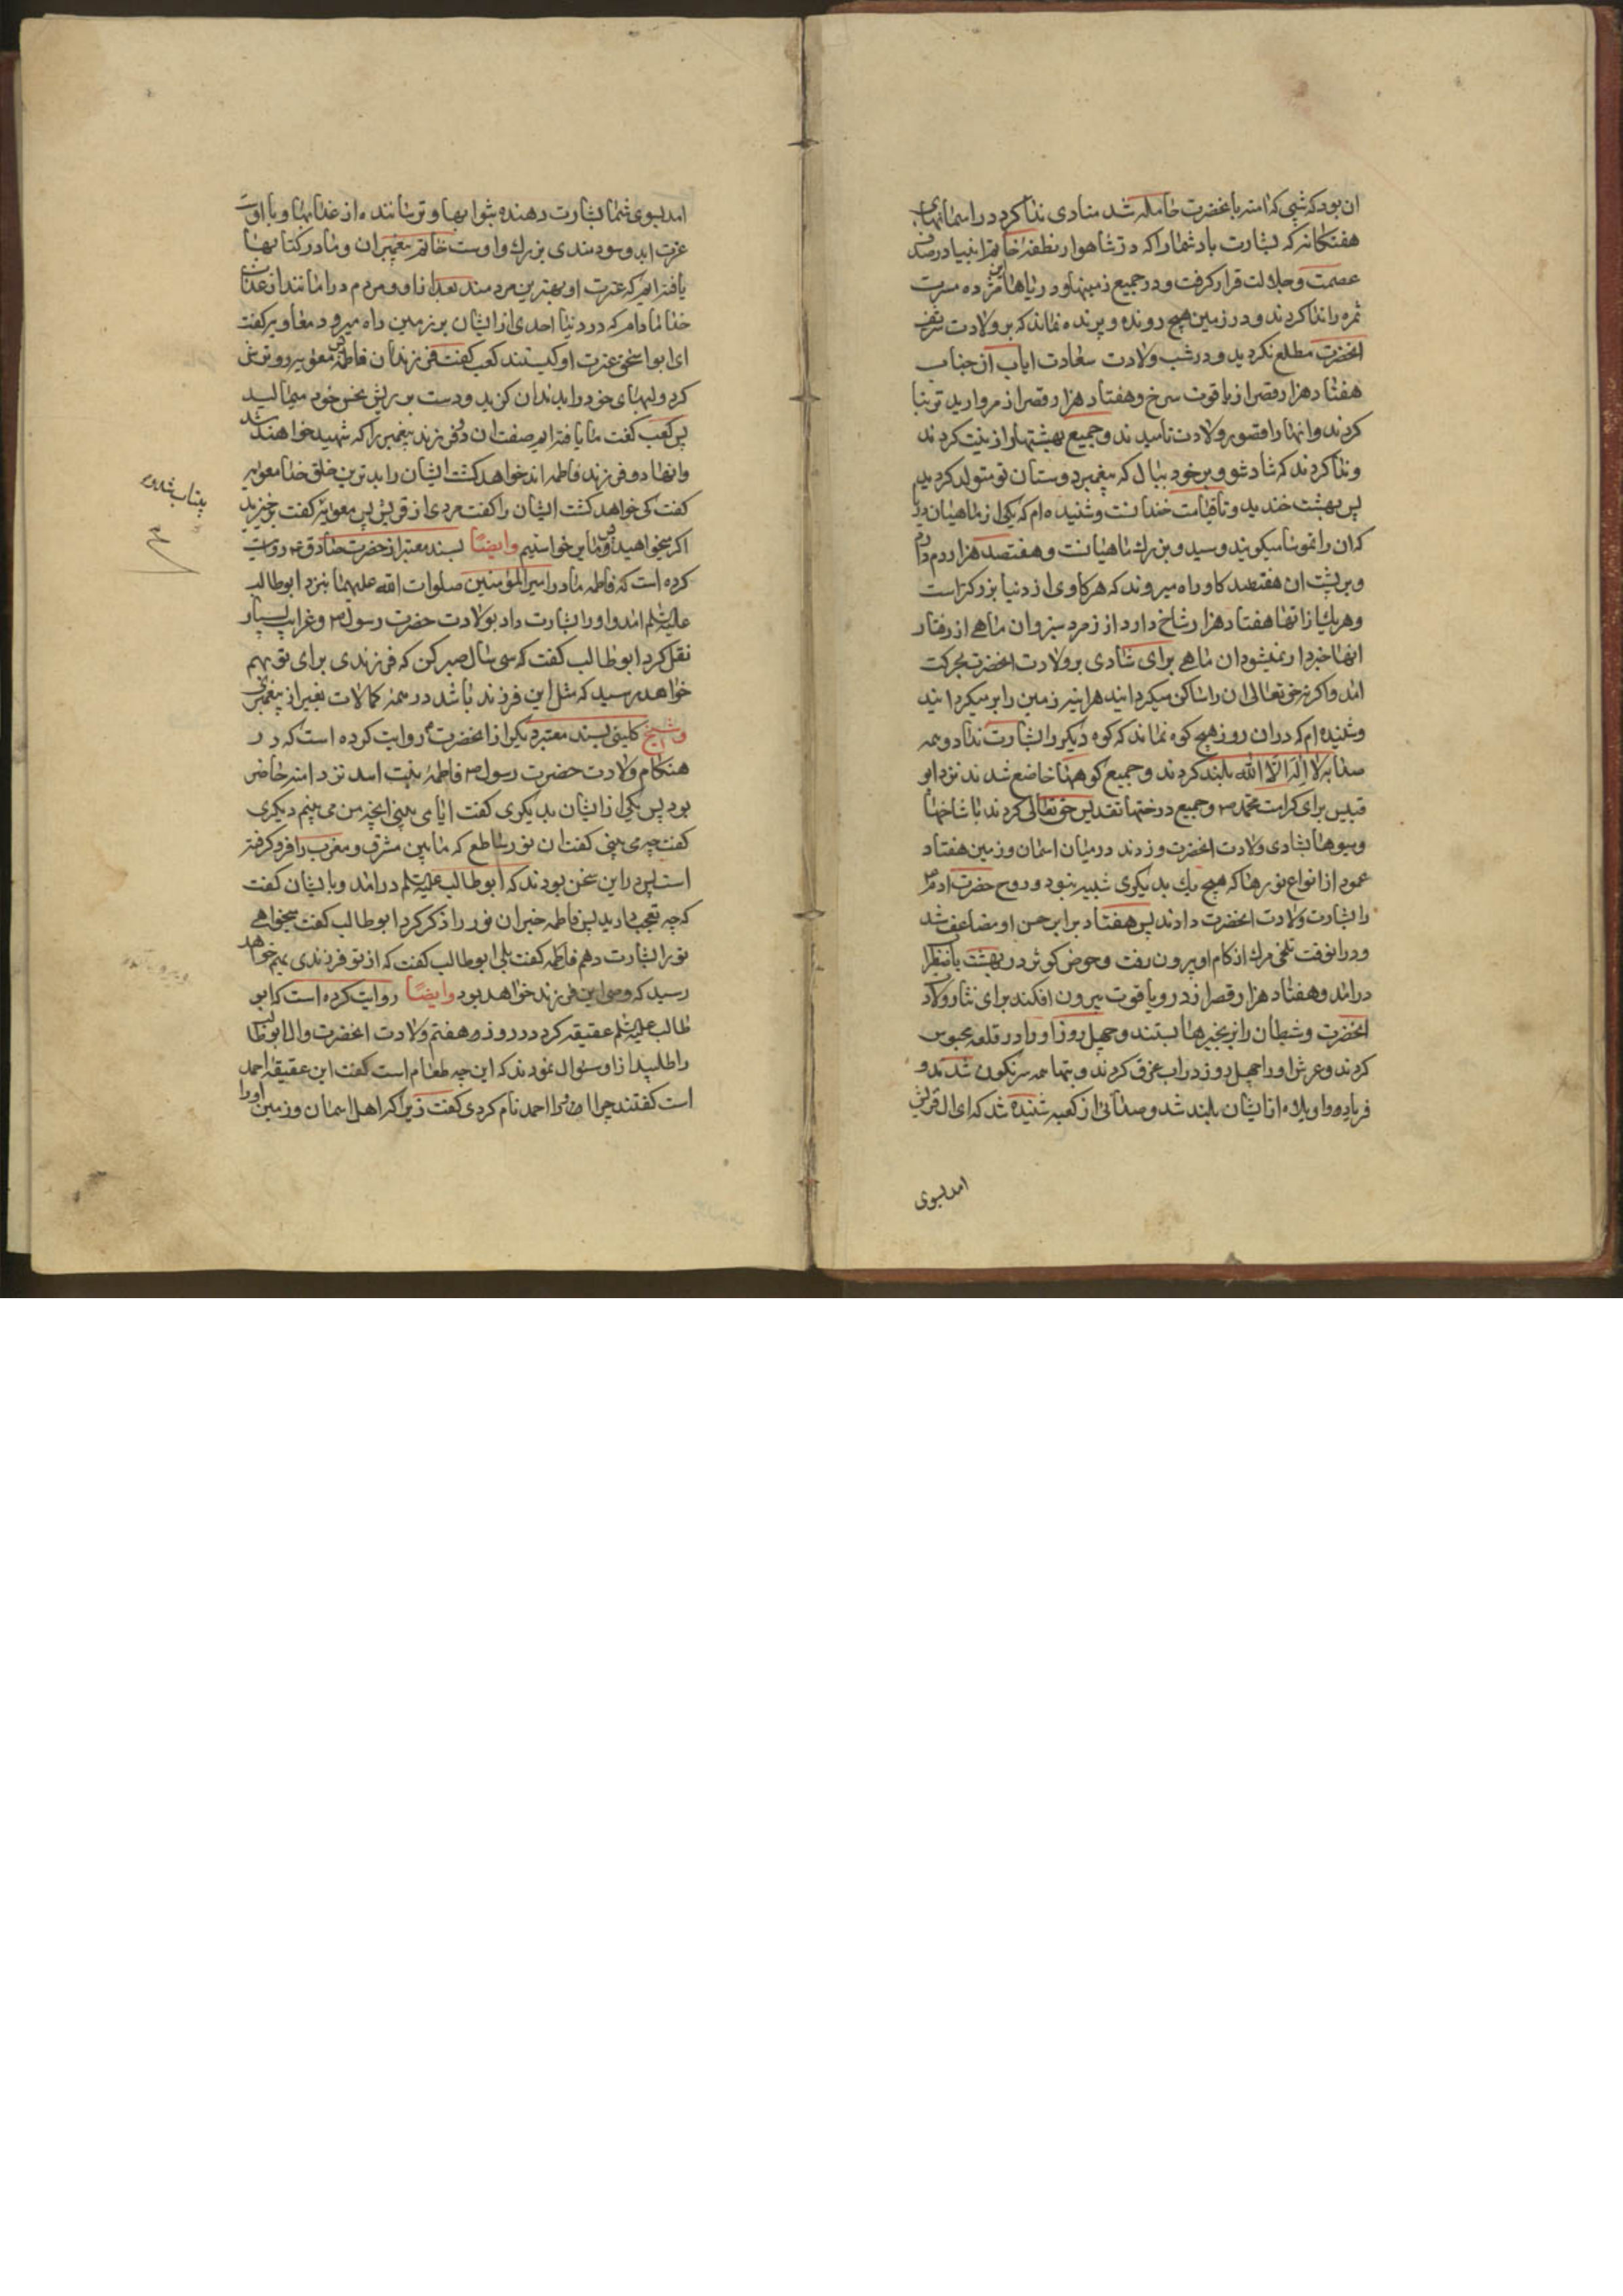 ان بود که شبی که امنه بانحضرت حامله شد منادی ندا کرد در اسمانهای
هفتکانه که بشارت باد شما را که در شاهوار نطفهٔ خاتم انبیا در صدف
عصمت و جلالت قرار کرفت و در جمیع زمینها و دریاها این مژده مسرت
ثمره را ندا کردند و در زمین هیچ رونده و پرنده نماند که بر ولادت شریف
انحضرت مطلع نکردید و در شب ولادت سعادت ایاب آن جناب
هفتاد هزار قصر از یاقوت سرخ و هفتاد هزار قصر از مروارید تر بنا
کردند و انها را قصور ولادت نامیدند و جمیع بهشتها را زینت کردند
و ندا کردند که شاد شو و بر خود ببال که پیغمبر دوستان تو متولد کردید
پس بهشت خندید و تا قیامت خندانست و شنیده ام که یکی از ماهیان دریا
که ان را طموسا میکویند و سید و بزرك ماهیانست و هفتصد هزار دم دارد
و بر پشت ان هفتصد کاو راه میروند که هر کاوی از دنیا بزرکتر است
و هر یك از انها هفتاد هزار شاخ دارد از زمرد سبز و ان ماهی از رفتار
انها خبردار نمیشود ان ماهی برای شادی بر ولادت انحضرت بحرکت
امد و اکر نه حق تعالی ان را ساکن میکردانید هراینه زمین را برمیکردانید
و شنیده ام که در ان روز هیچ کوه نماند که کوه دیکر را بشارت نداد و همه
صدا به لا اله الا الله بلند کردند و جمیع کوهها خاضع شدند نزد ابو
قبیس برای کرامت محمد ص و جمیع درختها تقدیس حق تعالی کردند با شاخها
و میوها بشادی ولادت انحضرت و زدند در میان اسمان و زمین هفتاد
عمود از انواع نورها که هیچ یك بدیکری شبیه نبود و روح حضرت ادم ع
را بشارت ولادت انحضرت دادند پس هفتاد برابر حسن او مضاعف شد
و در انوقت تلخی مرك از کام او بیرون رفت و حوض کوثر در بهشت باضطراب
درامد و هفتاد هزار قصر از در و یاقوت بیرون افکند برای نثار ولادت
انحضرت و شیطان را بزنجیرها بستند و چهل روز او را در قلعه محبوس
کردند و عرش او را چهل روز در اب غرق کردند و بتها همه سرنکون شدند و
فریاد و واویلاه از ایشان بلند شد و صدائی از کعبه شنیده شد که ای ال قریش
امد بسوی
امد بسوی شما بشارت دهنده بثوابها و ترساننده از عذابها و با اوست
عزت ابد و سودمندی بزرك و اوست خاتم پیغمبران و ما در کتابها
یافته ایم که عترت او بهترین مردمند بعد از او و مردم در امانند از عذاب
خدا مادام که در دنیا احدی از ایشان بر زمین راه میرود معاویه کفت
ای ابو اسحق عترت او کیستند کعب کفت فرزندان فاطمه پس معویه رو ترش
کرد و لبهای خود را بدندان کزید و دست بر ریش نحس خود میمالید
پس کعب کفت ما یافته ایم صفت ان دو فرزند پیغمبر را که شهید خواهند شد
و انها دو فرزند فاطمه اند خواهد کشت ایشان را بدترین خلق خدا معویه
کفت کی خواهد کشت ایشان را کفت مردی از قریش پس معویه کفت برخیزید
اکر میخواهید پس ما برخواستیم وایضاً بسند معتبر از حضرت صادق ع روایت
کرده است که فاطمه مادر امیر المؤمنین صلوات الله علیهما بنزد ابو طالب
علیه السلم امد و او را بشارت داد بولادت حضرت رسول ص و غرایب بسیار
نقل کرد ابو طالب کفت که سی سال صبر کن که فرزندی برای تو بهم
خواهد رسید که مثل این فرزند باشد در همهٔ کمالات بغیر از پیغمبری
و شیخ کلینی بسند معتبر دیکر از انحضرت روایت کرده است که در
هنکام ولادت حضرت رسول ص فاطمهٔ بنت اسد نزد امنه حاضر
بود پس یکی از ایشان بدیکری کفت ایا می بینی انچه من می بینم دیکری
کفت چه می بینی کفت ان نور ساطع که مابین مشرق و مغرب را فرو کرفته
است پس در این سخن بودند که ابو طالب علیه السلم درامد و بایشان کفت
که چه تعجب دارید پس فاطمه خبر ان نور را ذکر کرد ابو طالب کفت میخواهی
تو را بشارت دهم فاطمه کفت بلی ابو طالب کفت که از تو فرزندی بهم خواهد
رسید که وصی این فرزند خواهد بود وایضاً روایت کرده است که ابو
طالب علیه السلم عقیقه کرد در روز هفتم ولادت انحضرت و ال ابو طالب
را طلبید از او سئوال نمودند که این چه طعام است کفت این عقیقهٔ احمد
است کفتند چرا او را احمد نام کردی کفت زیرا که اهل اسمان و زمین او را